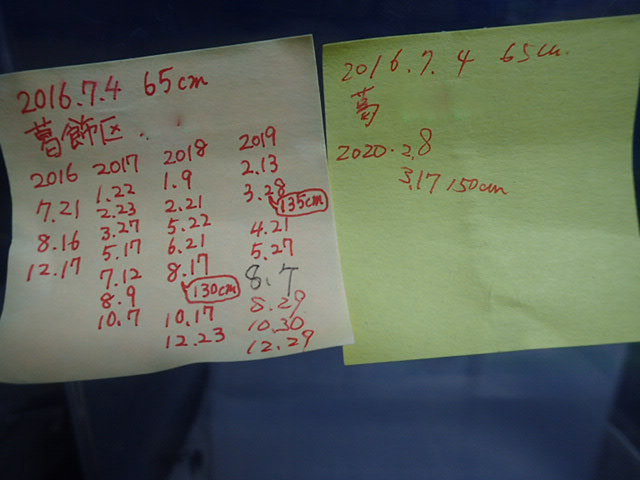 2016.7.4 65cm
葛飾区
2016 2017 2018 2019
7.21 1.22 1.9 2.13
8.16 2.23 2.21 3.28
12.17 3.27 5.22 135cm
5.17 6.21 4.21
7.12 8.17 5.27
8.9 130cm 8.7
10.7 10.17 8.29
12.23 10.30
12.29
2016.7.4 65cm
葛
2020.2.8
3.17 150cm